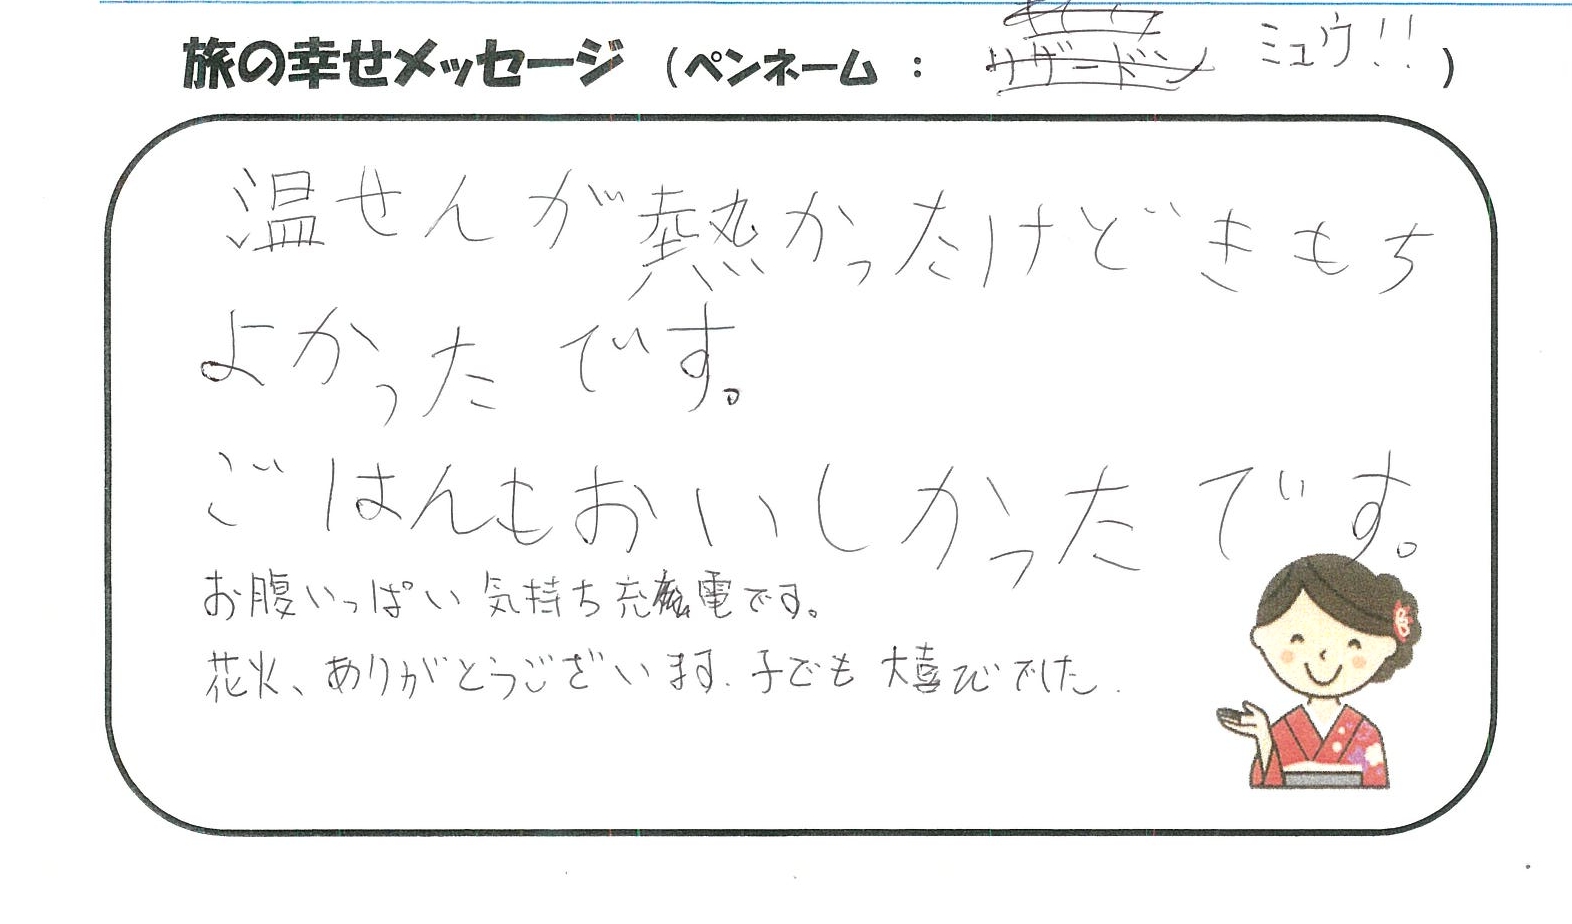 旅の幸せメッセージ (ペンネーム : リザードン ミュウ!! )
温せんが熱かったけどきもち
よかったです。
ごはんもおいしかったです。
お腹いっぱい 気持ち充電です。
花火、ありがとうございます. 子ども 大喜びでした.